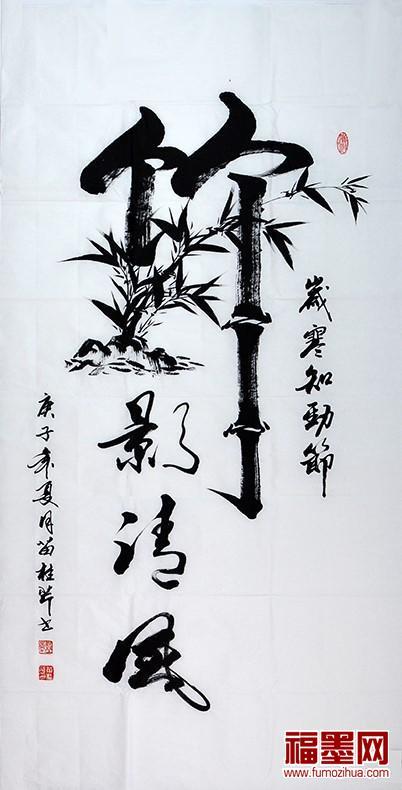 竹影清风
歲寒知勁節
庚子年夏月苗桂芹书
福墨网
www.fumozihua.com